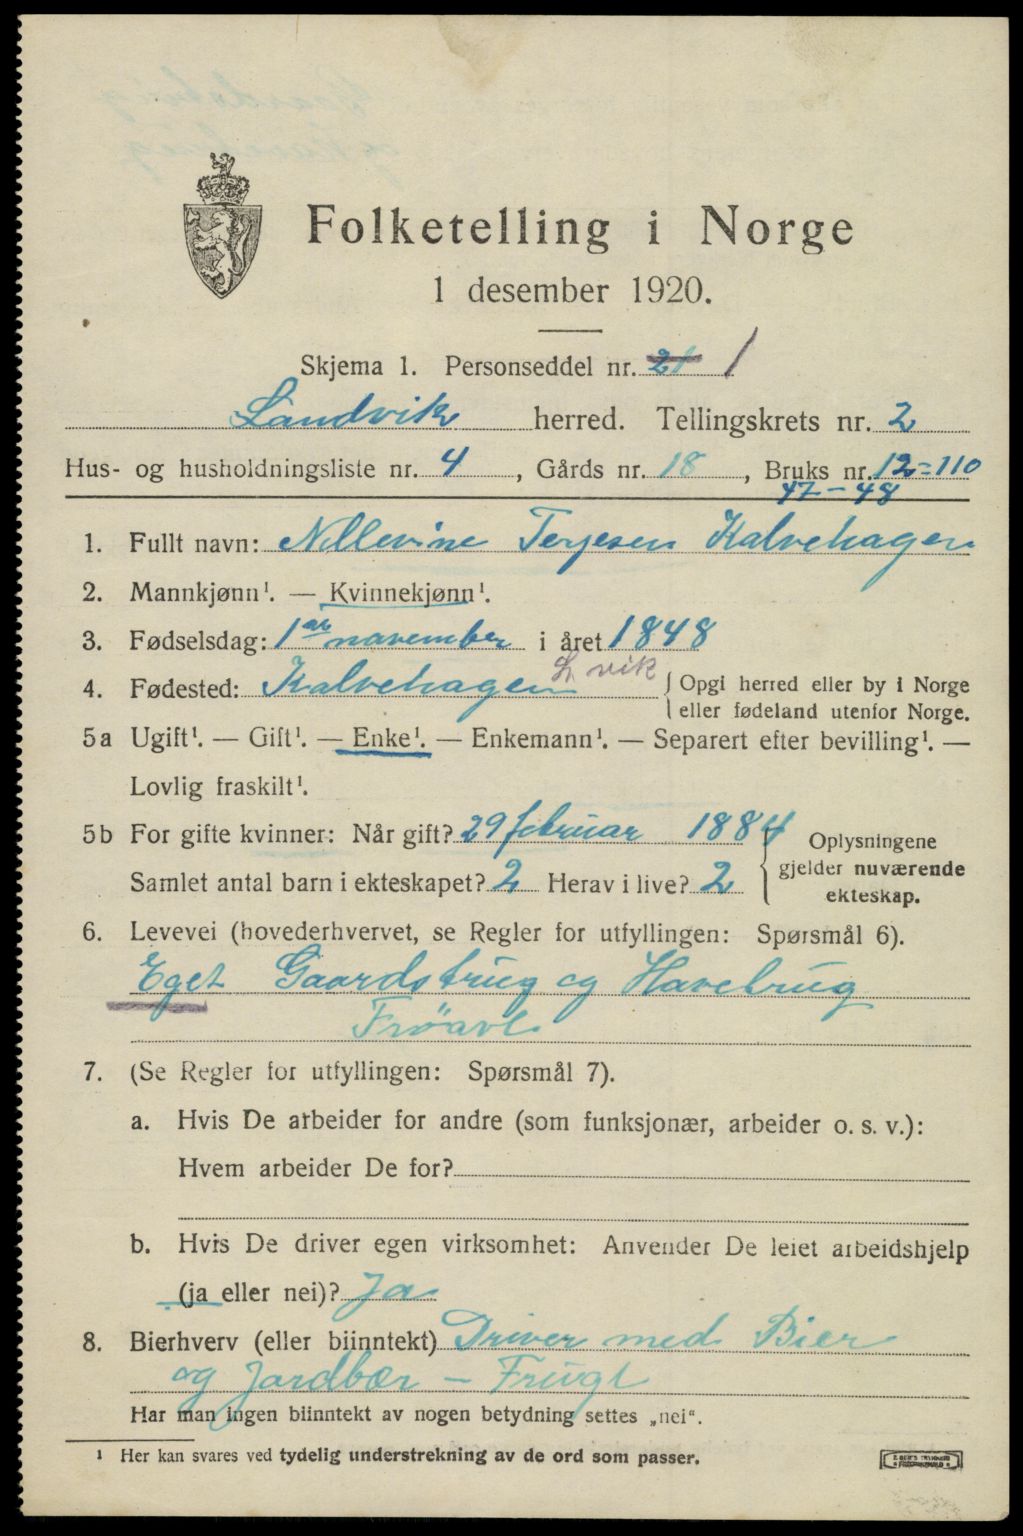 Folketelling i Norge
1 desember 1920.
Skjema 1. Personseddel nr. 21 1
Landvik herred. Tellingskrets nr. 2
Hus- og husholdningsliste nr. 4, Gårds nr. 18, Bruks nr. 12=110
47-48
1. Fullt navn: Nillevine Terjesen Kalvehagen
2. Mannkjønn¹. — Kvinnekjønn¹.
3. Fødselsdag: 1ar november i året 1848
4. Fødested: Kalvehagen L.vik { Opgi herred eller by i Norge
eller fødeland utenfor Norge.
5a Ugift¹. — Gift¹. — Enke¹. — Enkemann¹. — Separert efter bevilling¹. —
Lovlig fraskilt¹.
5b For gifte kvinner: Når gift? 29 februar 1884
Samlet antal barn i ekteskapet? 2 Herav i live? 2
{ Oplysningene
gjelder nuværende
ekteskap.
6. Levevei (hovederhvervet, se Regler for utfyllingen: Spørsmål 6).
Eget Gaardsbrug og Havebrug
Frøavl
7. (Se Regler for utfyllingen: Spørsmål 7).
a. Hvis De arbeider for andre (som funksjonær, arbeider o. s. v.):
Hvem arbeider De for?
b. Hvis De driver egen virksomhet: Anvender De leiet arbeidshjelp
(ja eller nei)? Ja
8. Bierhverv (eller biinntekt) Driver med Bier
og Jordbær - Frugt
Har man ingen biinntekt av nogen betydning settes „nei".
¹ Her kan svares ved tydelig understrekning av de ord som passer.